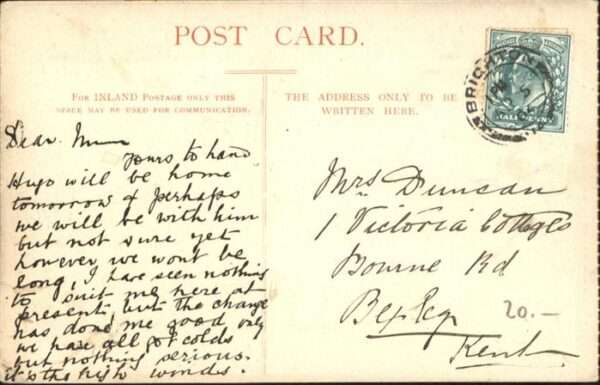 POST CARD.
FOR INLAND POSTAGE ONLY THIS
SPACE MAY BE USED FOR COMMUNICATION.
THE ADDRESS ONLY TO BE
WRITTEN HERE.
BRIGHTON
HALFPENNY
Dear Mum
yours to hand
Hugo will be home
tomorrow & perhaps
we will be with him
but not sure yet
however we wont be
long, I have seen nothing
to suit me here at
present, but the change
has done me good only
we have all got colds
but nothing serious.
it's the high winds.
Mrs Duncan
1 Victoria Cottages
Bourne Rd
Bexley
Kent
20.-